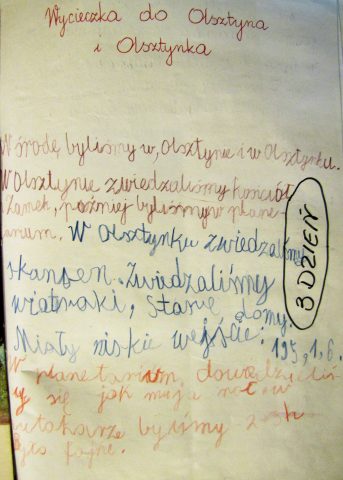 Wycieczka do Olsztyna
i Olsztynka
W środę byliśmy w Olsztynie i w Olsztynku.
W Olsztynie zwiedzaliśmy kościół
Zamek, później byliśmy w plane-
arium. W Olsztynku zwiedzaliśmy
skansen. Zwiedzaliśmy
wiatraki, stare domy.
Miały niskie wejście: 195,1,6.
W planetarium, dowiedzieliś
my się jak
byliśmy
fajne.
3 DZIEŃ